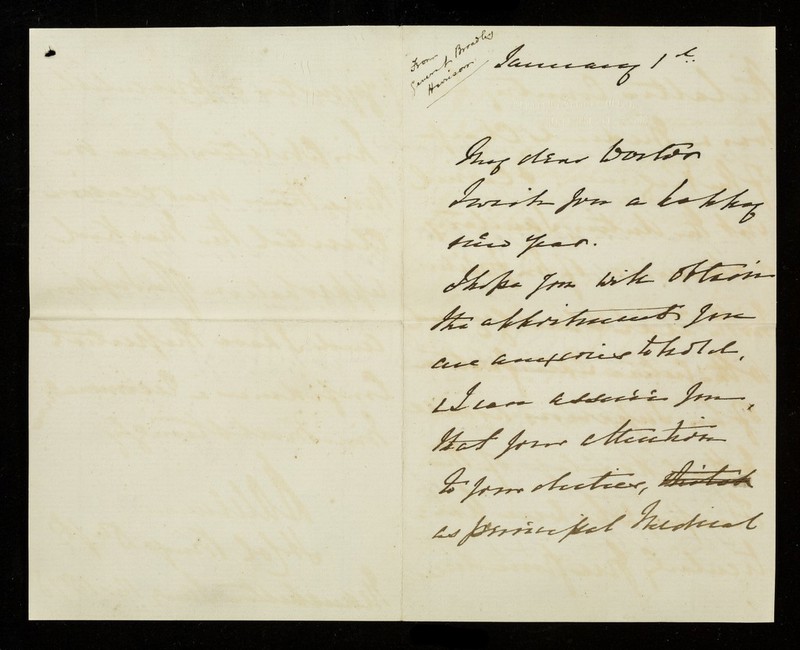 From
General Broadley
Harrison
January 1st
My dear Doctor
I wish you a happy
new year.
I hope you will obtain
the appointment you
are anxious to hold,
& I can assure you,
that your attention
to your duties,
as principal Medical